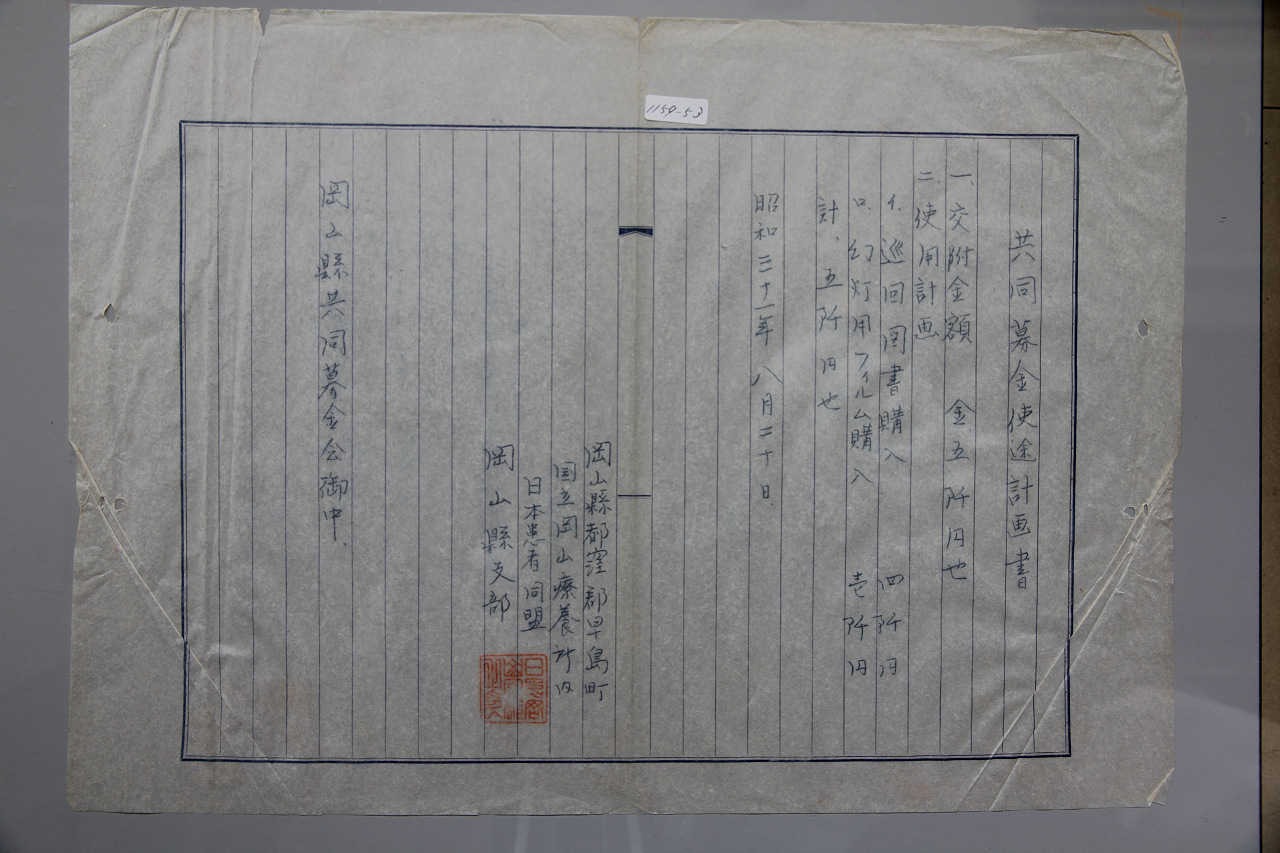 1159-53
共同募金使途計画書
一、交附金額 金五阡円也
二、使用計画
イ、巡回図書購入 四阡円
ロ、幻灯用フイルム購入 壱阡円
計、五阡円也
昭和三十一年八月二十日
岡山縣都窪郡早島町
国立岡山療養所内
日本患者同盟
岡山縣支部
岡山縣共同募金会御中、